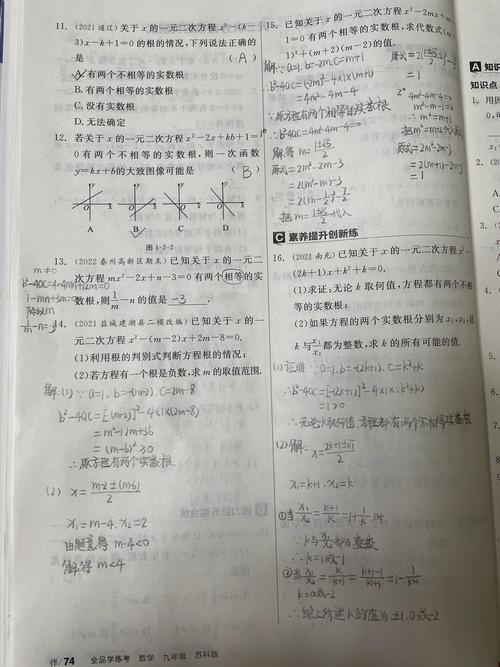 11. (2021 通辽)关于 x 的一元二次方程 x²-(k-
3)x-k+1=0 的根的情况,下列说法正确的
是 ( A )
A. 有两个不相等的实数根
B. 有两个相等的实数根
C. 没有实数根
D. 无法确定
12. 若关于 x 的一元二次方程 x²-2x+kb+1=
0 有两个不相等的实数根,则一次函数
y=kx+b 的大致图像可能是 ( B )
A B C D
图 1-2-2
13. (2022 泰州高新区期末)已知关于 x 的一元
二次方程 mx²-2x+n-3=0 有两个相等的实
数根,则 1/m -n 的值是 -3 .
m≠0
14. (2021 盐城建湖县二模改编)已知关于 x 的一
元二次方程 x²-(m-2)x+2m-8=0.
(1)利用根的判别式判断方程根的情况;
(2)若方程有一个根是负数,求 m 的取值范围.
解:(1)∵a=1, b=-(m-2), c=2m-8
b²-4ac=[-(m-2)]²-4×1×(2m-8)
=m²-12m+36
=(m-6)²≥0
∴原方程有两个实数根
(2) x=(m-2±(m-6))/2
x₁=m-4, x₂=2
由题意得 m-4<0
解得 m<4
15. 已知关于 x 的一元二次方程 x²-2mx+m+
1=0 有两个相等的实数根,求代数式(m-
1)²+(m+2)(m-2)的值.
解:∵a=1, b=-2m, c=m+1
b²-4ac=(-2m)²-4×1×(m+1)
=4m²-4m-4
∵原方程有两个相等的实数根
∴b²-4ac=4m²-4m-4=0
解得 m=(1±√5)/2
原式=2m²-2m-3
=2(m²-m)-3
把 m=(1±√5)/2 代入
=1
4m²-4m-4=0
m²-m-1=0
∴m²=m+1
原式=2m²-2m-3
=2(m+1)-2m-3
=-1
C 素养提升创新练
16. (2021 南充)已知关于 x 的一元二次方程 x²-
(2k+1)x+k²+k=0.
(1)求证:无论 k 取何值,方程都有两个不相
等的实数根;
(2)如果方程的两个实数根分别为 x₁,x₂,且
k 与 x₁/x₂ 都为整数,求 k 的所有可能的值.
(1)证明:∵a=1, b=-(2k+1), c=k²+k
∴b²-4ac=[-(2k+1)]²-4×1×(k²+k)
=1>0
∴无论k取何值,方程都有两个不相等实数根
(2)解: x=(2k+1±√1)/2
x₁=k+1, x₂=k
①当 x₁/x₂=(k+1)/k=1+1/k 时
∵k与 x₁/x₂ 都为整数
∴k=1或-1
②当 x₁/x₂=k/(k+1)=(k+1-1)/(k+1)=1-1/(k+1)
k=0或-2
∴综上所述k的值为±1,0或-2
作/74 全品学练考 数学 九年级 苏科版
A 知识
知识点